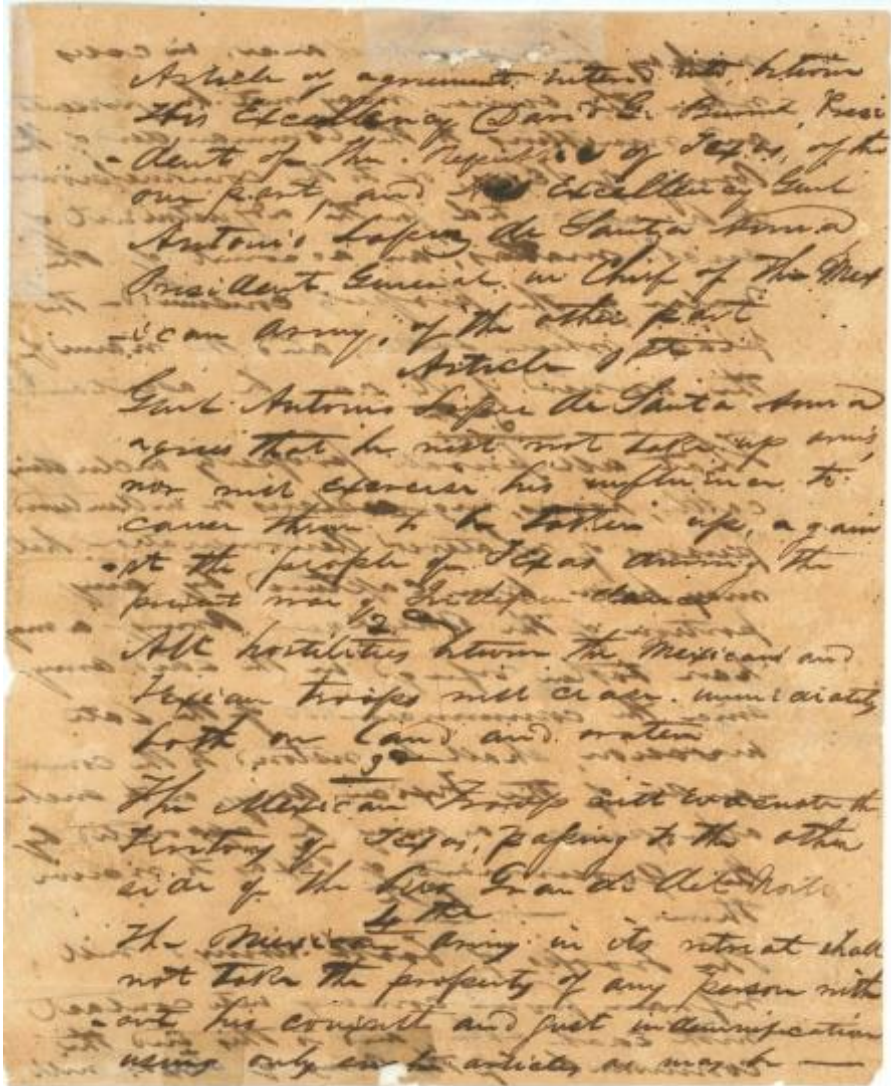 Article of agreement entered into between
His Excellency David G. Burnet, Presi
-dent of the Republic of Texas, of the
one part, and His Excellency Genl
Antonio Lopez de Santa Anna
President General in Chief of the Mex
-ican Army, of the other part
Article 1st
Genl Antonio Lopez de Santa Anna
agrees that he will not take up arms,
nor will exercise his influence to
cause them to be taken up, again
-st the people of Texas during the
present war of Independence
2
All hostilities between the Mexican and
Texian troops will cease immediately
both on land and water
3
The Mexican Troops will evacuate the
Territory of Texas, passing to the other
side of the Rio Grande del Norte
4th
The Mexican Army in its retreat shall
not take the property of any person with
-out his consent and just indemnification
using only such articles as may be